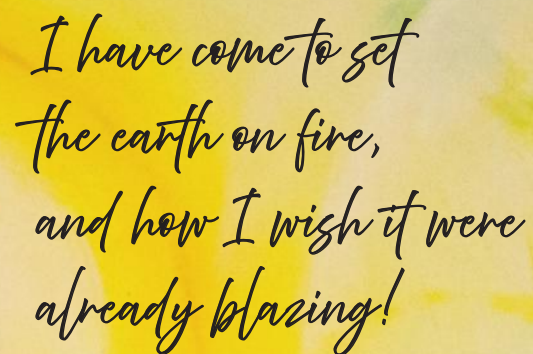 I have come to set
the earth on fire,
and how I wish it were
already blazing!